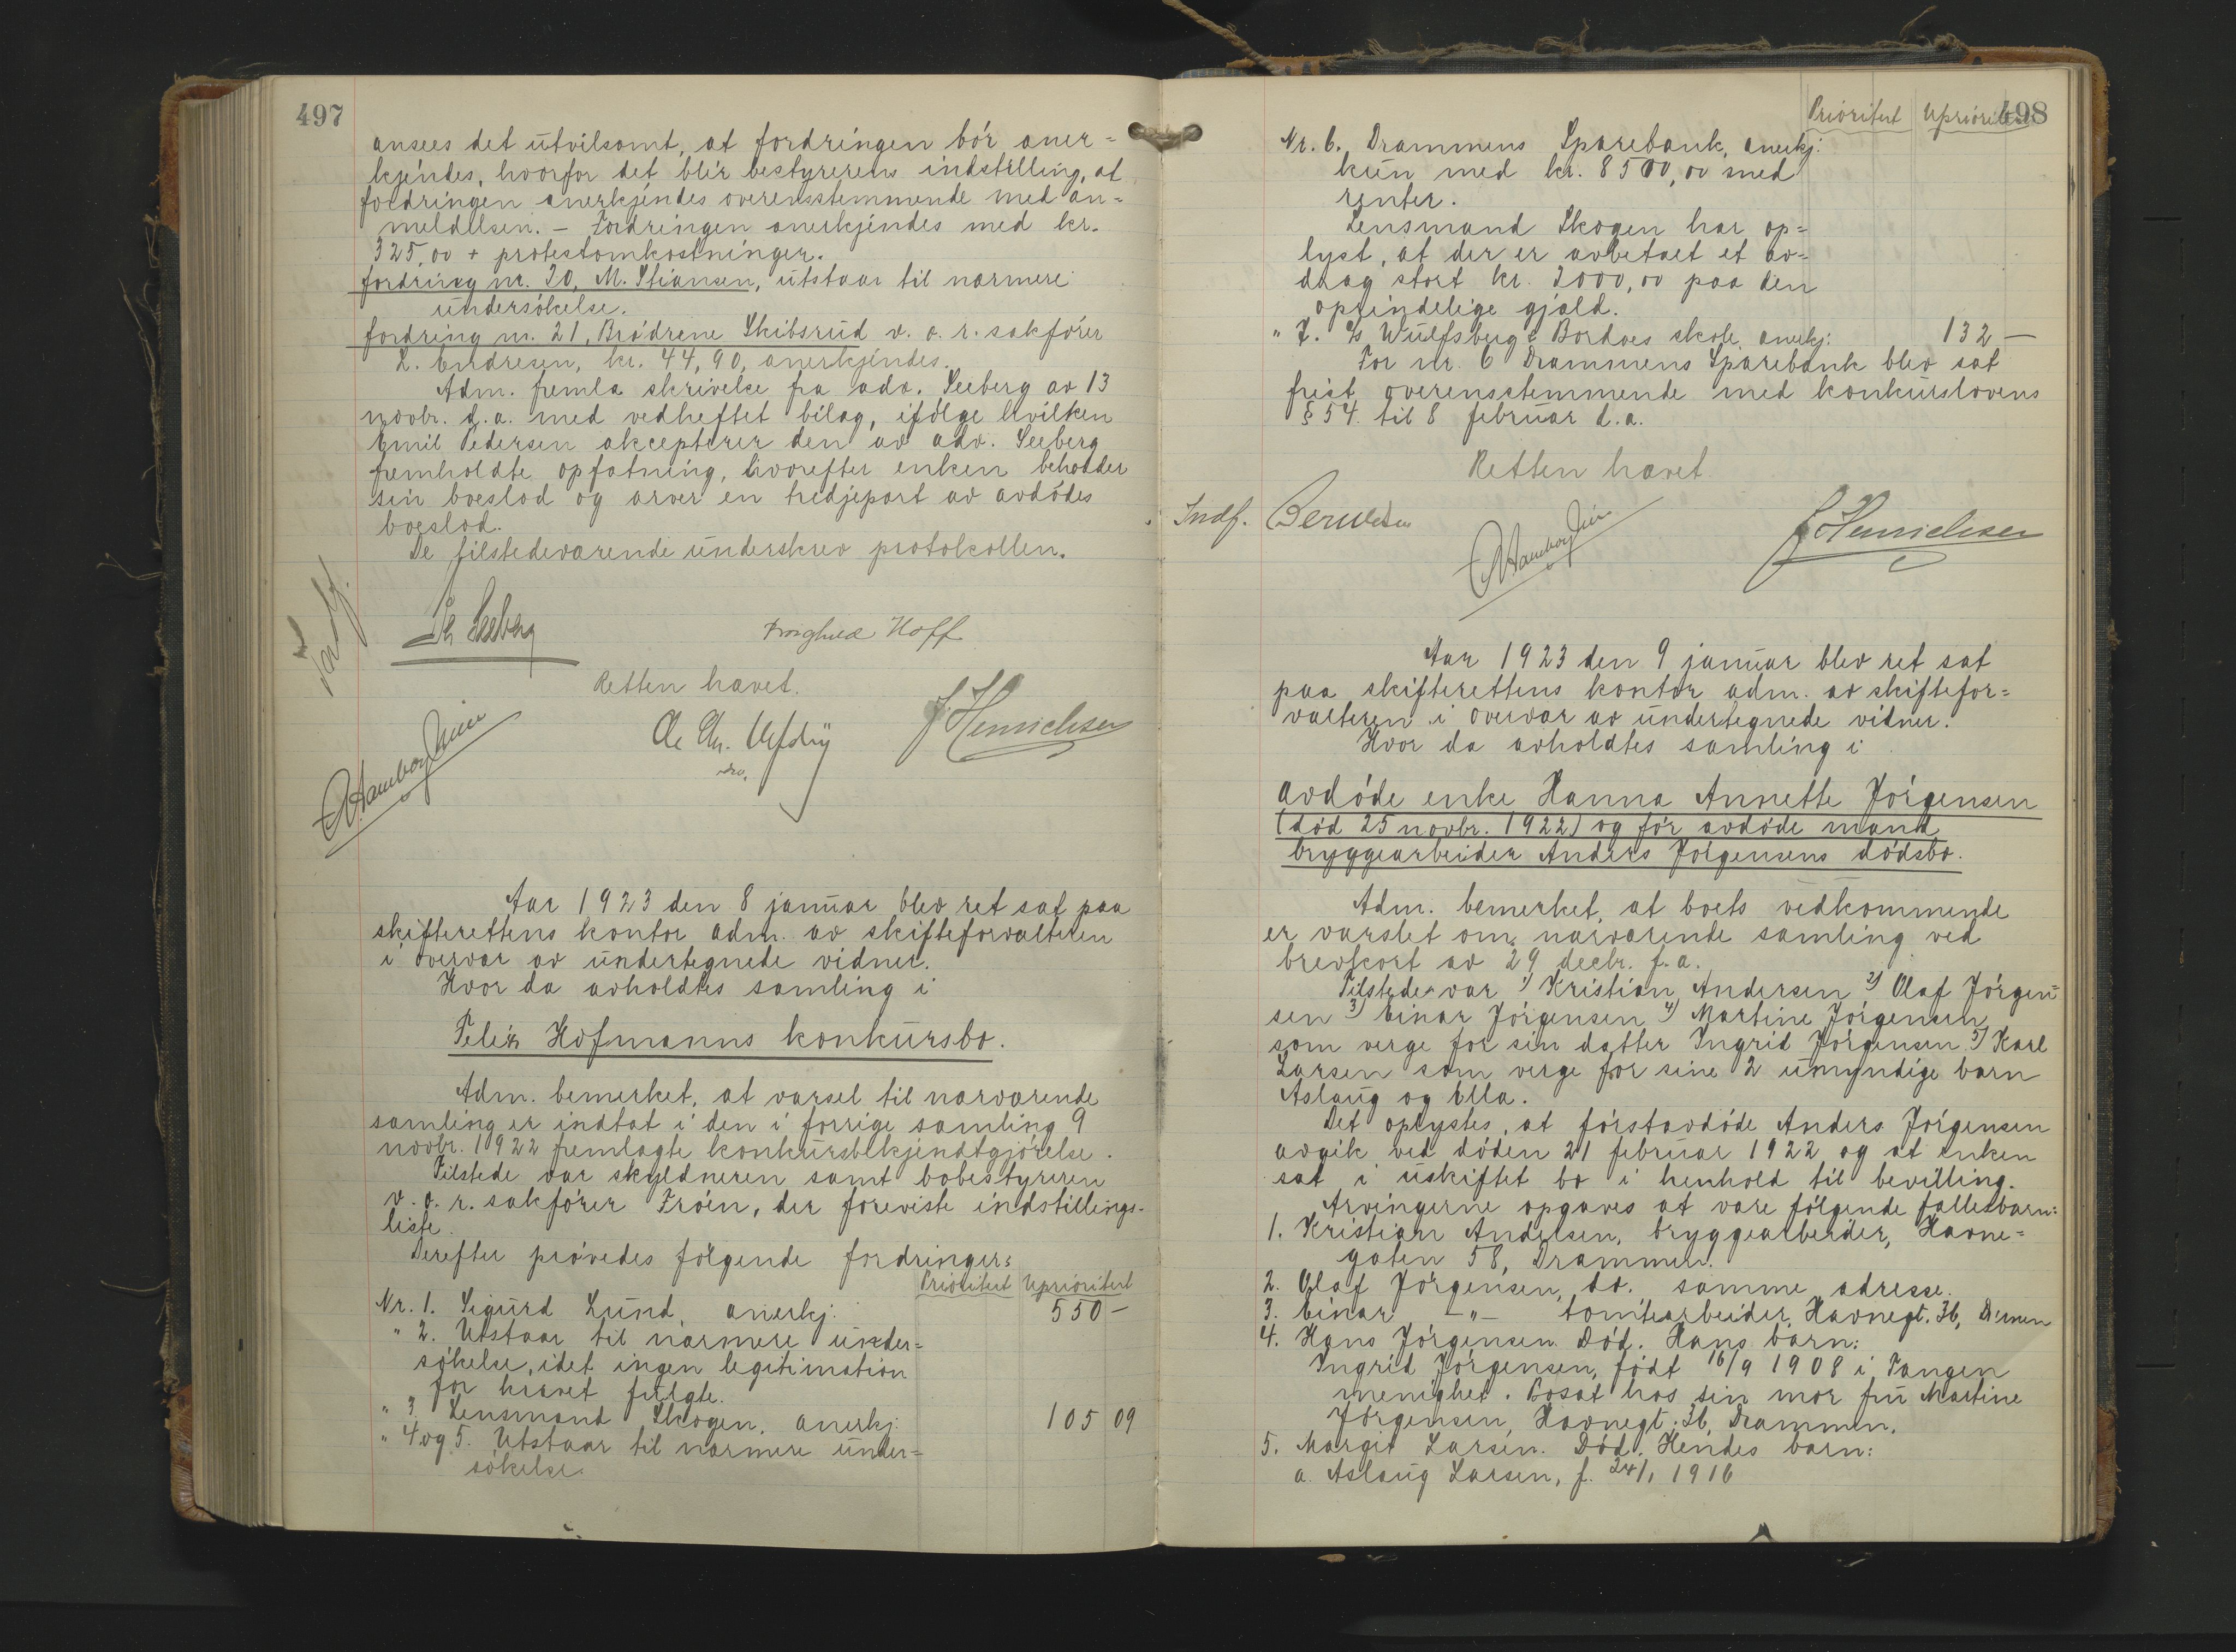 497
ansees det utvilsomt, at fordringen bør aner=
kjendes, hvorfor det blir bestyrerens indstilling, at
fordringen anerkjendes overensstemmende med an=
meldelsen. – Fordringen anerkjendes med kr.
325,00 + protestomkostninger.
fordring nr. 20, M. Stiansen, utstaar til nærmere
undersøkelse.
fordring nr. 21, Brødrene Skibsrud v. o. r. sakfører
L. Endresen, kr. 44,90, anerkjendes.
Adm. femla skrivelse fra adv. Seeberg av 13
novbr. d.a. med vedheftet bilag, ifølge hvilken
Emil Pedersen akcepterer den av adv. Seeberg
fremholdte opfatning, hvorefter enken beholder
sin boeslod og arver en tredjepart av avdødes
boeslod.
De tilstedeværende underskrev protokollen.
Seeberg
Hoff
Retten hævet.
J Henrichsen
Aar 1923 den 8 januar blev ret sat paa
skifterettens kontor adm. av skifteforvalteren
i overvær av undertegnede vidner.
Hvor da avholdtes samling i
Felix Hofmanns konkursbo.
Adm. bemerket, at varsel til nærværende
samling er indtat i den i forrige samling 9
novbr. 1922 fremlagte konkursbekjendtgjørelse.
Tilstede var skyldneren samt bobestyreren
v. o. r. sakfører Frøin, der foreviste indstillings-
liste.
Derefter prøvedes følgende fordringer:
Prioritert Uprioritert
Nr. 1. Sigurd Lund, anerkj: 550 –
" 2. Utstaar til nærmere under=
søkelse, idet ingen legitimation
for kravet fulgte.
" 3. Lensmand Skogen, anerkj: 105 09
" 4 og 5. Utstaar til nærmere under=
søkelse.
498
Prioritert Uprioritert
Nr. 6. Drammens Sparebank, anerkj:
kun med kr. 8500,00 med
renter.
Lensmand Skogen har op=
lyst, at der er avbetalt et av=
drag stort kr. 2000,00 paa den
oprindelige gjæld.
" 7. A/s Wulfsberg & Bordoes skole, anerkj: 132 –
For nr. 6 Drammens Sparebank blev sat
frist overensstemmende med konkurslovens
§ 54. til 8 februar d.a.
Retten hævet.
Indf. Berntsen
J Henrichsen
Aar 1923 den 9 januar blev ret sat
paa skifterettens kontor adm. av skiftefor=
valteren i overvær av undertegnede vidner.
Hvor da avholdtes samling i
avdøde enke Hanna Annette Jørgensen
(død 25 novbr. 1922) og før avdøde mand
bryggearbeider Anders Jørgensens dødsbo.
Adm. bemerket, at boets vedkommende
er varslet om nærværende samling ved
brevkort av 29 decbr. f.a.
Tilstede var 1) Kristian Andersen 2) Olaf Jørgen=
sen 3) Einar Jørgensen 4) Martine Jørgensen
som verge for sin datter Ingrid Jørgensen 5) Karl
Larsen som verge for sine 2 umyndige barn
Aslaug og Ella.
Det oplystes, at førstavdøde Anders Jørgensen
avgik ved døden 21 februar 1922 og at enken
sat i uskiftet bo i henhold til bevilling.
Arvingerne opgaves at være følgende fællesbarn:
1. Kristian Andersen, bryggearbeider, Havne=
gaten 58, Drammen.
2. Olaf Jørgensen, do. samme adresse.
3. Einar –"– tomtearbeider, Havnegt. 36, Dr:men
4. Hans Jørgensen. Død. Hans barn:
Ingrid Jørgensen, født 16/9 1908 i Tangen
menighet. Bosat hos sin mor fru Martine
Jørgensen, Havnegt. 36, Drammen.
5. Margit Larsen. Død. Hendes barn:
a. Aslaug Larsen, f. 24/1 1916